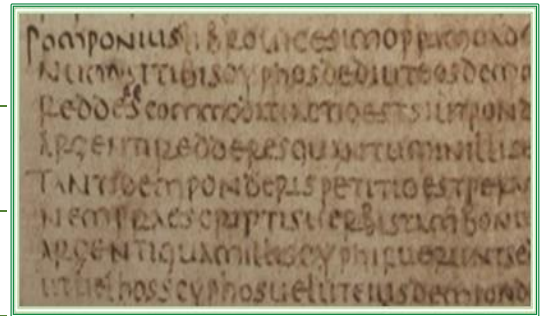 pomponius libro uicesimo primo ad
tibi scyphos dedi ut eosdem
reddes commodati actio est si ut pond
argenti redderes quantum in illis
tanti ponderis petitio est per
nem praescriptis uerbis tam boni
argenti quam illi scyphi fuerunt se
ut uel hos scyphos uel ut eiusdem pond